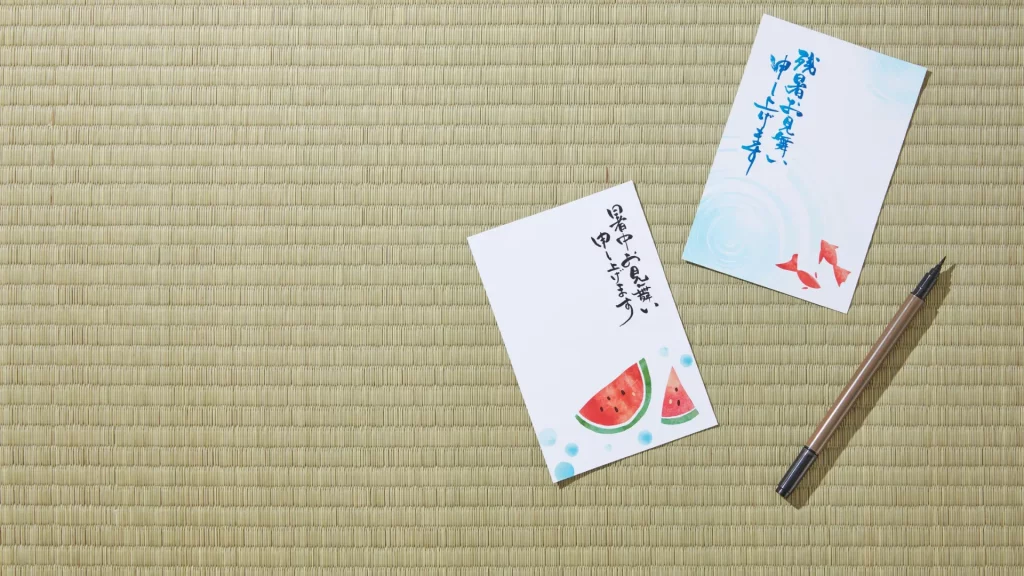 残暑お見舞い
申し上げます
暑中お見舞い
申し上げます